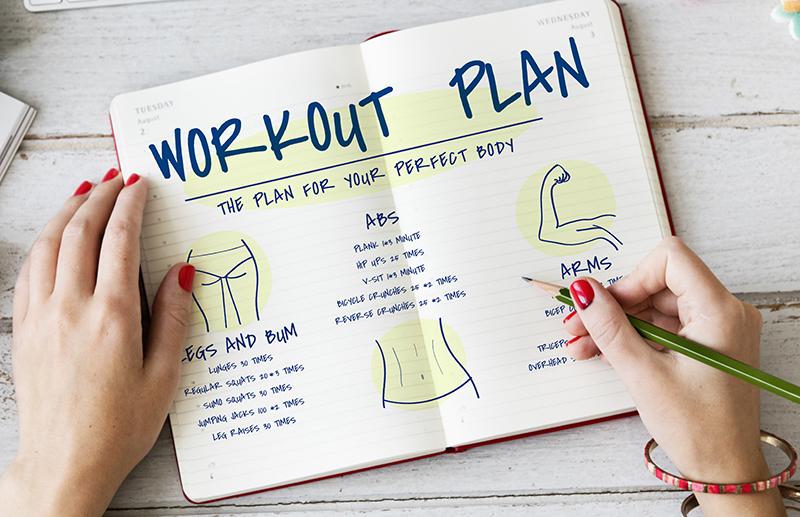 TUESDAY
August
2
WEDNESDAY
August
3
WORKOUT PLAN
THE PLAN FOR YOUR PERFECT BODY
ABS
PLANK 1*3 MINUTE
HIP UPS 25 TIMES
V-SIT 1*3 MINUTE
BICYCLE CRUNCHES 25 *2 TIMES
REVERSE CRUNCHES 25 *2 TIMES
LEGS AND BUM
LUNGES 30 TIMES
REGULAR SQUATS 20*3 TIMES
SUMO SQUATS 30 TIMES
JUMPING JACKS 100 *2 TIMES
LEG RAISES 30 TIMES
ARMS
BICEP
TRICEPS
OVERHEAD